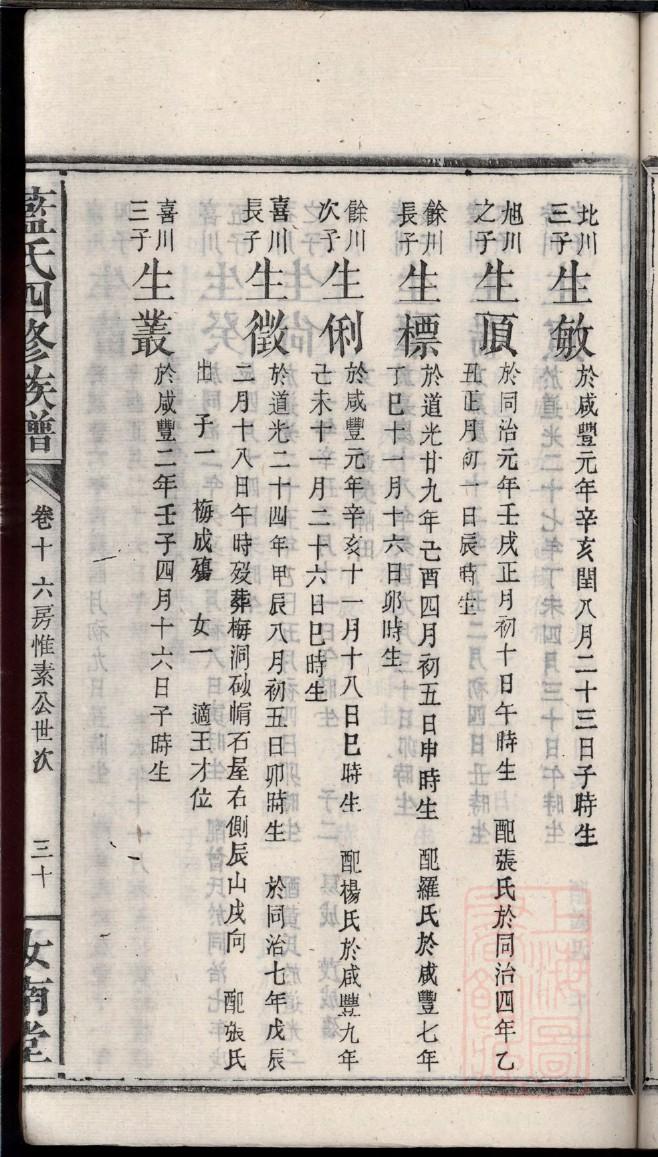 北川三子 生敏 於咸豐元年辛亥閏八月二十三日子時生
旭川之子 生頂 於同治元年壬戌正月初十日午時生 配張氏於同治四年乙
丑正月初十日辰時生
餘川長子 生標 於道光廿九年己酉四月初五日申時生 配羅氏於咸豐七年
丁巳十一月十六日卯時生
餘川次子 生俐 於咸豐元年辛亥十一月十八日巳時生 配楊氏於咸豐九年
己未十一月二十六日巳時生
喜川長子 生徵 於道光二十四年甲辰八月初五日卯時生 於同治七年戊辰
二月十八日午時歿葬梅洞砂帽石屋右側辰山戌向 配張氏
出 子一 梅成殤 女一 適王才位
喜川三子 生叢 於咸豐二年壬子四月十六日子時生
藍氏四修族譜 卷十六房惟素公世次 三十 汝南堂
上海圖書館藏